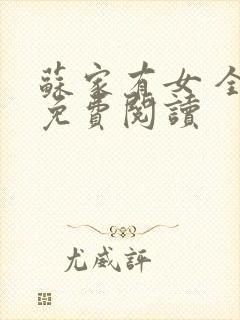 蘇家有女全
免費閱讀
尤威評